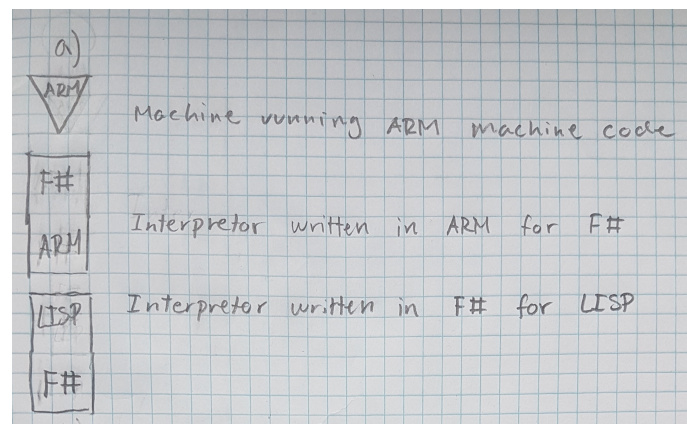 a)
ARM
Machine running ARM machine code
F#
Interpretor written in ARM for F#
ARM
LISP
Interpretor written in F# for LISP
F#